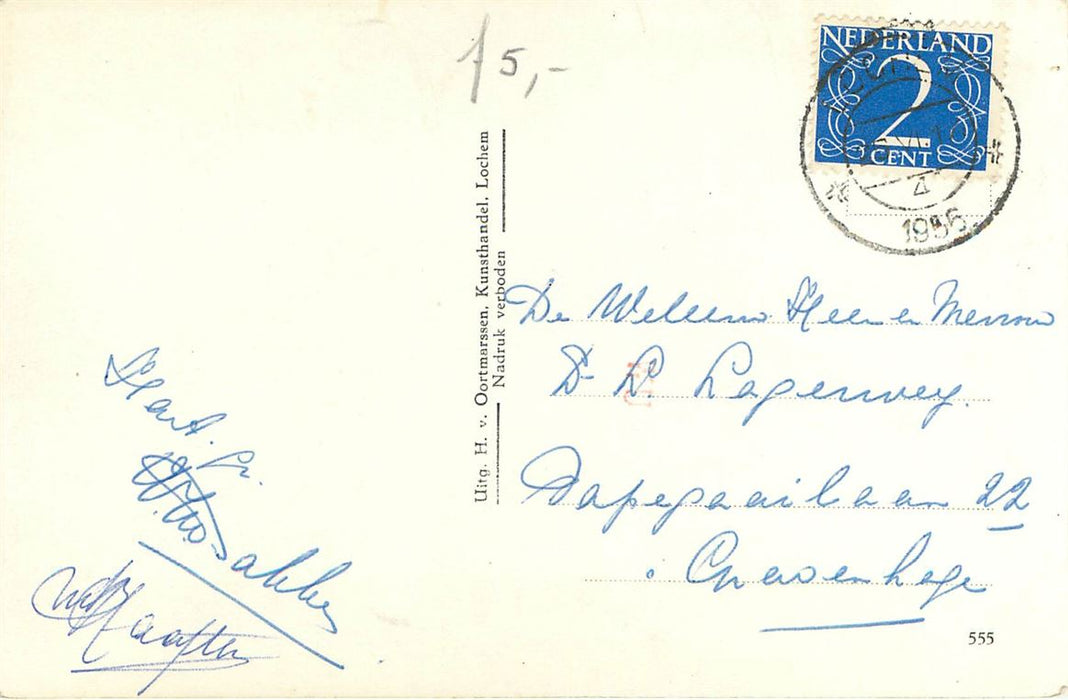 f 5,-
NEDERLAND
2
CENT
4
1956
Uitg. H. v. Oortmarssen, Kunsthandel, Lochem
Nadruk verboden
De Weledele Heer en Mevrouw
Dr L. Lagerwey.
Papegaailaan 22
Gravenhage
Hart. Gr.
Bakker
555